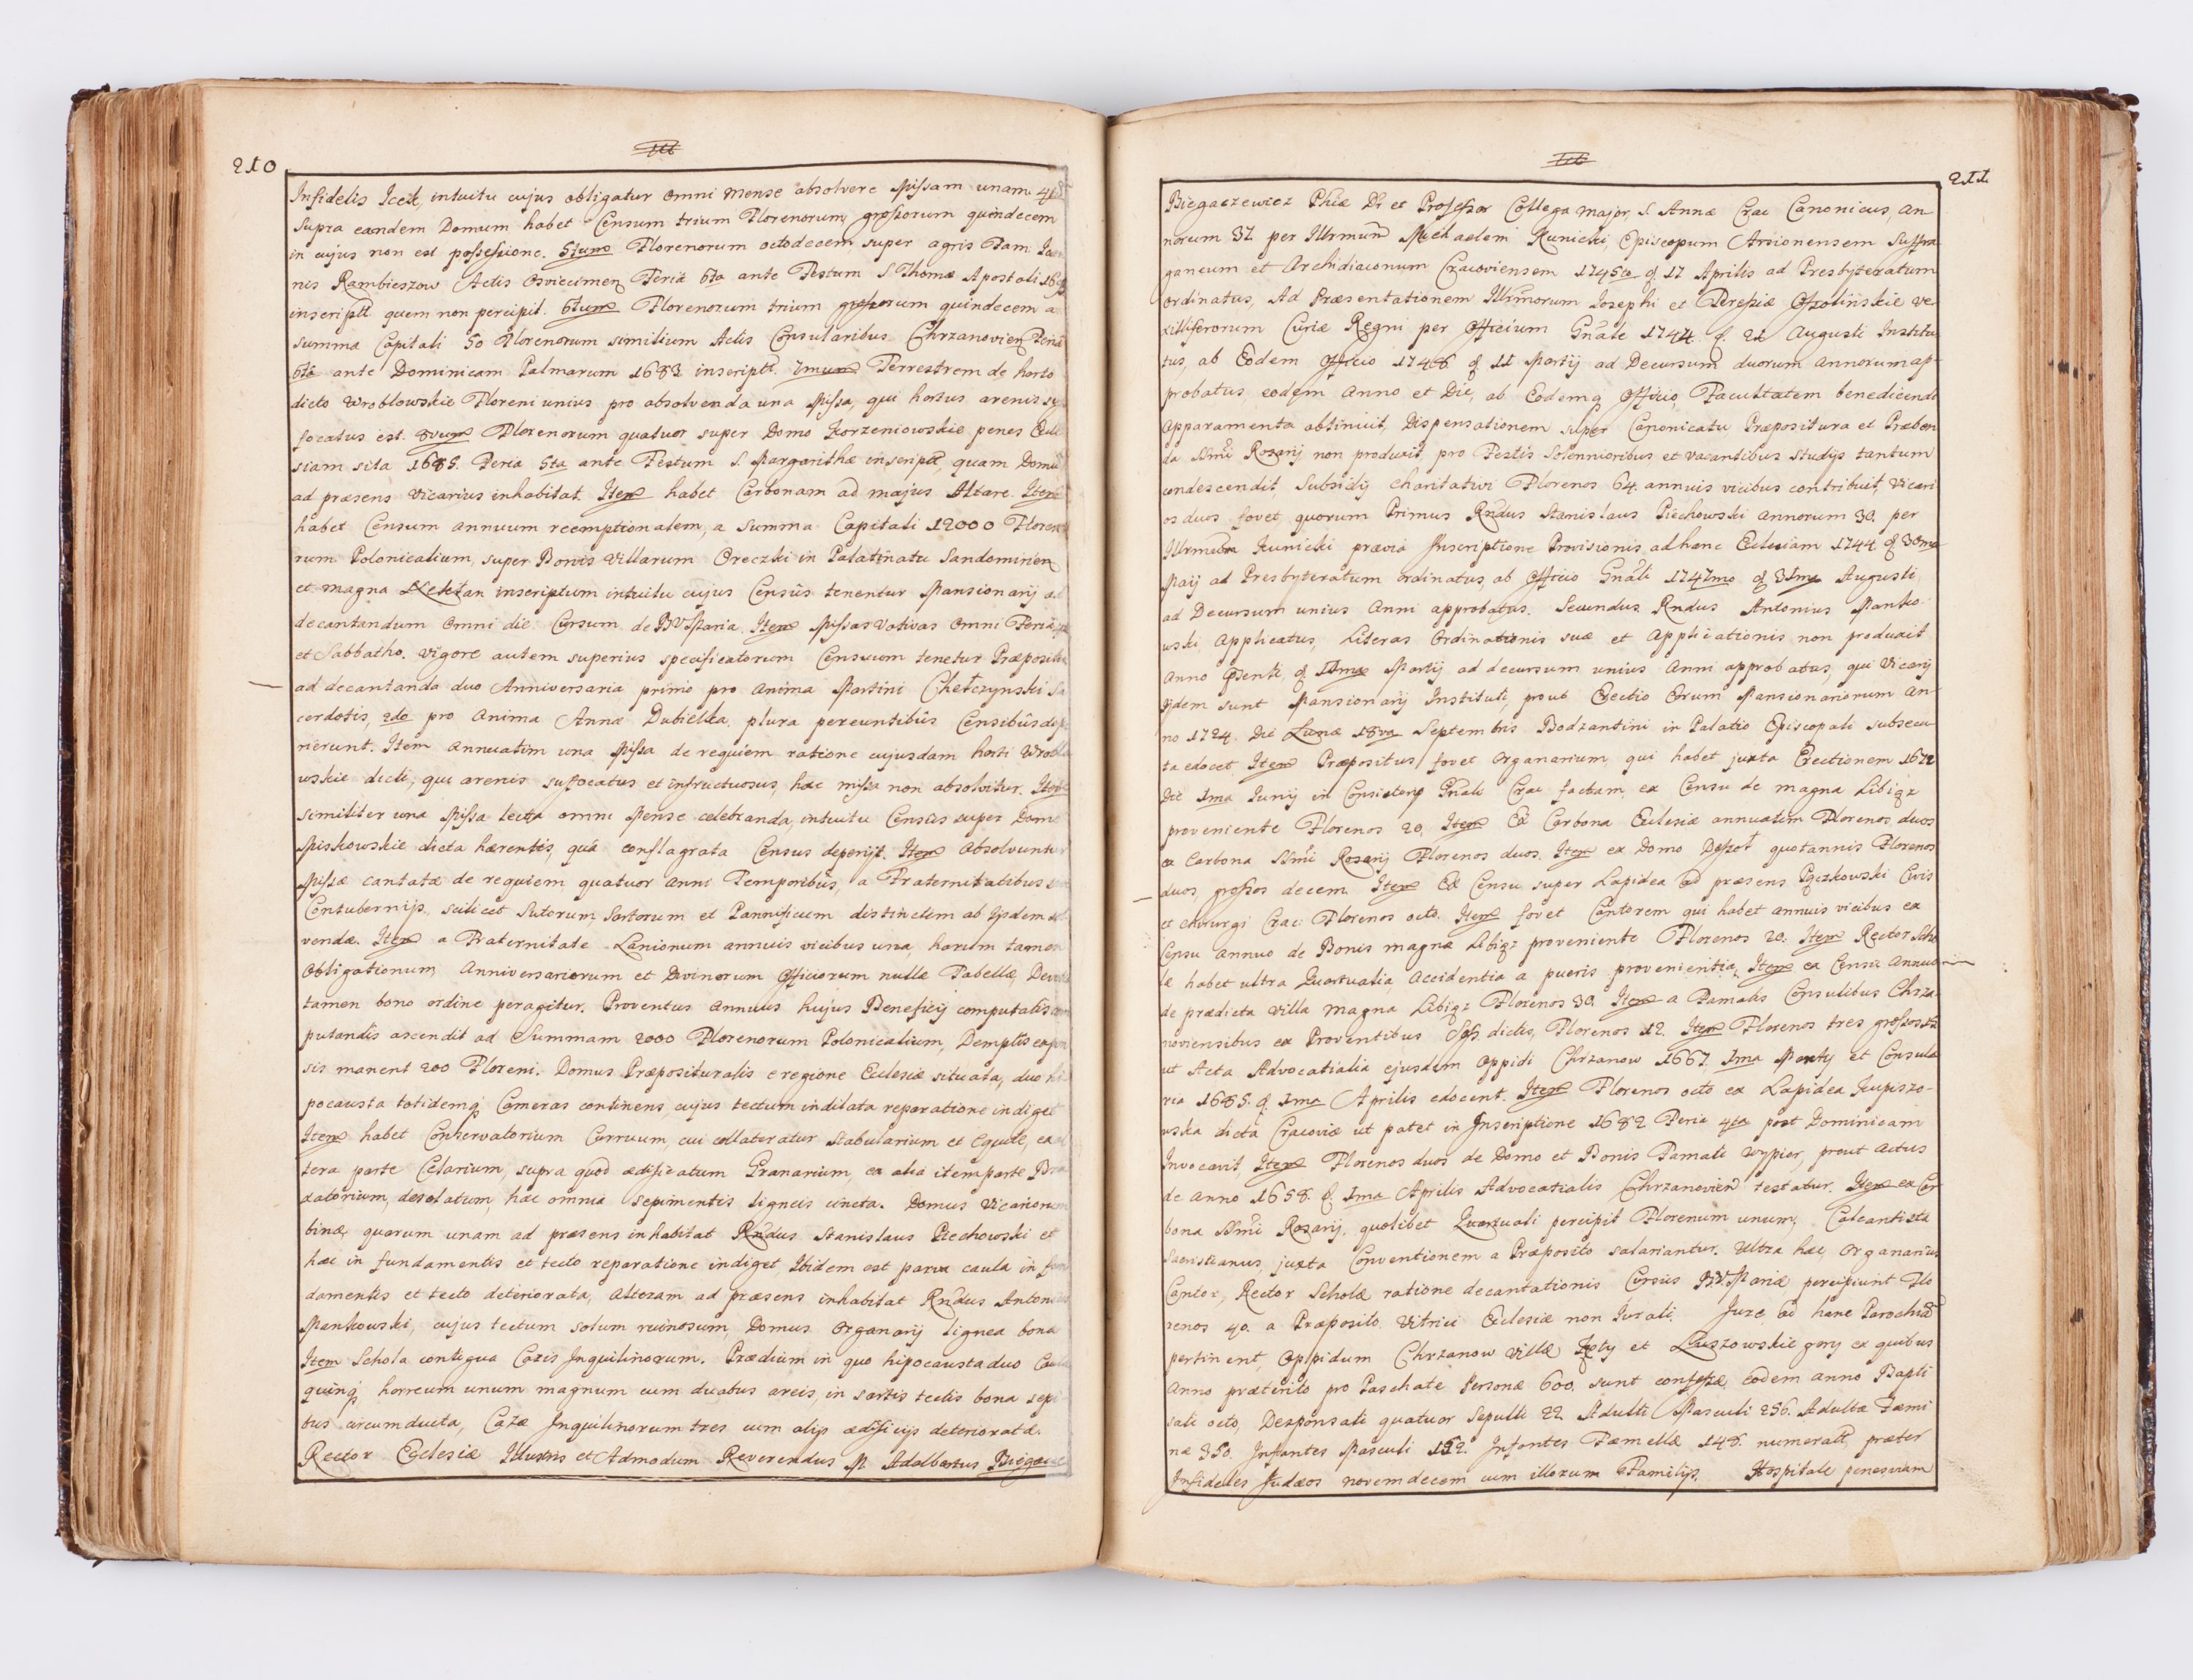 210
Infidelis Icek, intuitu cujus obligatur omni Mense absolvere Missam unam.
Supra eandem Domum habet Censum trium Florenorum, grossorum quindecem
in cujus non est possessione. 5tum Florenorum octodecem, super agris Fam:
nis Rambieszow Actis Osviecimen Feria 6ta ante Festum S. Thomæ Apostoli
inscriptt. quem non percipit. 6tum Florenorum trium grossorum quindecem a
summa Capitali 50 Florenorum similium Actis Consularibus Chrzanovien Feria
6ta ante Dominicam Palmarum 1683 inscriptt. 7mum Terrestrem de horto
dicto Wroblowskie Floreni unius pro absolvenda una Missa, qui hortus arenis
focatus est. 8vum Florenorum quatuor super Domo Korzeniowskie penes Eccle
siam sita 1685. Feria 5ta ante Festum S. Margarithæ inscriptt, quam Domum
ad præsens Vicarius inhabitat. Item habet Carbonam ad majus Altare. Item
habet Censum annuum reemptionalem, a Summa Capitali 12000 Floreno
rum Polonicalium, super Bonis Villarum Oreczki in Palatinatu Sandomirien
et magna inscriptum intuitu cujus Censûs tenentur Mansionarij ad
decantandum omni die Cursum de BV Maria. Item Missas Votivas omni Feria
et Sabbatho. Vigore autem superius specificatorum Censuum tenetur Præpositus
ad decantanda duo Anniversaria primo pro anima Martini Chełczynski Sa
cerdotis, 2do pro Anima Annæ Dubielka, plura pereuntibûs Censibûs
rierunt. Item annuatim una Missa de requiem ratione cujusdam horti Wroblo
wskie dicti, qui arenis suffocatus et infructuosus, hæc missa non absolvitur. Item
similiter una Missa lecta omni Mense celebranda, intuitu Censûs super Domo
Miskowskie dicta hærentis, quâ conflagrata Census deperijt. Item Absolvuntur
Missæ cantatæ de requiem quatuor anni Temporibûs, a Fraternitatibus
Contubernijs, scilicet Sutorum, Sartorum et Pannificum distinctem ab ijsdem sol
vendæ. Item a Fraternitate Lanionum annuis vicibus una, harum tamen
obligationum Anniversariorum et Divinorum Officiorum nullæ Tabellæ,
tamen bono ordine peragitur. Proventus annuus hujus Beneficij computatis com
putandis ascendit ad Summam 2000 Florenorum Polonicalium, Demptis expen
sis manent 200 Floreni. Domus Præposituralis e regione Ecclesiæ situata, duo hi
pocausta totidemq Cameras continens, cujus tectum indilata reparatione indiget
Item habet Conservatorium Curruum, cui collateratur Stabularium et Equile, ex al
tera parte Celarium, supra quod ædificatum Granarium, ex alia item parte Bra
xatorium, desolatum, hæc omnia sepimentis ligneis cincta. Domus Vicariorum
binæ, quarum unam ad præsens inhabitat Rndus Stanislaus Piechowski et
hæc in fundamentis et tecto reparatione indiget, Ibidem est parva caula in fun
damentis et tecto deteriorata, Alteram ad præsens inhabitat Rndus Antonius
Mankowski, cujus tectum solum ruinosum, Domus Organarij lignea bona
Item Schola contigua Casis Inquilinorum. Prædium in quo hipocausta duo
quinq horreum unum magnum cum duabus areis, in sartis tectis bona sepi
bus circumducta, Casæ Inquilinorum tres cum alijs ædificijs deteriorata.
Rector Ecclesiæ Illustris et Admodum Reverendus M. Adalbertus
211
Biegaczewicz Phiæ Dr et Professor Collega Major, S. Annæ Crac Canonicus, An
norum 37 per Illrmum Michaelem Kunicki, Episcopum Arsionensem Suffra
ganeum et Archidiaconum Cracoviensem 1745to d 17 Aprilis ad Presbyteratum
ordinatus, Ad Præsentationem Illrmorum Josephi et Theresiæ Ossolinskie ve
xilliferorum Curiæ Regni per Officium Gnale 1744 d. 21 Augusti Institu
tus, ab Eodem Officio 1748 d 11 Martij ad Decursum duorum annorum ap
probatus, eodem Anno et Die, ab Eodemq Officio, Facultatem benedicendi
apparamenta obtinuit, Dispensationem super Canonicatu Præpositura et Præben
da SSmi Rosarij non produxit, pro Festis Solennioribus et vacantibus Studijs tantum
condescendit, Subsidij Charitativi Florenos 64. annuis vicibus contribuit, Vicari
os duos fovet, quorum Primus Rndus Stanislaus Piechowski annorum 30. per
Illrmum Kunicki prævia Inscriptione Provisionis ad hanc Ecclesiam 1744 d 30ma
Maij ad Presbyteratum ordinatus, ab Officio Gnali 1747mo d 31ma Augusti,
ad Decursum unius Anni approbatus. Secundus Rndus Antonius Manko
wski, Applicatus, Literas Ordinationis suæ et Applicationis non produxit
Anno Pnti, d 11ma Martij ad decursum unius Anni approbatus, qui Vicarij
ijdem sunt Mansionarij Instituti, prout Erectio Eorum Mansionariorum An
no 1724 Die Lunæ 18va Septembris Bodzantini in Palatio Episcopali subsecu
ta edocet. Item Præpositus fovet Organarium, qui habet juxta Erectionem 1672
Die 1ma Junij in Consistorij Gnali Crac factam, ex Censu de magna Libiąz
proveniente Florenos 20, Item Ex Carbona Ecclesiæ annuatim Florenos duos
ex Carbona SSmi Rosarij Florenos duos. Item ex Domo quotannis Florenos
duos, grossos decem Item Ex Censu super Lapidea ad præsens Pączkowski Civis
et Chirurgi Crac: Florenos octo. Item fovet Cantorem qui habet annuis vicibus ex
Censu annuo de Bonis magnæ Libiąz proveniente Florenos 20. Item Rector Scho
læ habet ultra Quartualia, Accidentia a pueris provenientia, Item ex Censu annuo
de prædicta Villa magna Libiąz Florenos 30. Item a Famatis Consulibus Chrza
noviensibus ex Proventibus dictis, Florenos 12. Item Florenos tres grossos
ut Acta Advocatialia ejusdem Oppidi Chrzanow 1667. 1ma Martij et Consula
ria 1685. d. 1ma Aprilis edocent. Item Florenos octo ex Lapidea Kupiszo
wska dicta Cracoviæ ut patet in Inscriptione 1682 Feria 4ta post Dominicam
Invocavit, Item Florenos duos de Domo et Bonis Famati Wypior, prout Actus
de Anno 1658. d. 1ma Aprilis Advocatialis Chrzanovien testatur. Item ex Car
bona SSmi Rosarij, quolibet Quartuali percipit Florenum unum, Calcantista
Sacristianus, juxta Conventionem a Præposito salariantur. Ultra hæc, Organarius
Cantor, Rector Scholæ, ratione decantationis Cursûs BV Mariæ, percipiunt Flo
renos 40. a Præposito, Vitrici Ecclesiæ non Jurati. Jure ad hanc Parochiam
pertinent, Oppidum Chrzanow Villæ Kąty et Luszowskie gory ex quibus
Anno præterito pro Paschate Personæ 600, sunt confessæ, eodem anno Bapti
sati octo, Desponsati quatuor Sepulti 22 Adulti Masculi 256. Adultæ Fæmi
næ 350. Infantes Masculi 152. Infantes Fæmellæ 148. numerantt, præter
Infideles Judæos novemdecem cum illorum Familijs. Hospitale penes viam